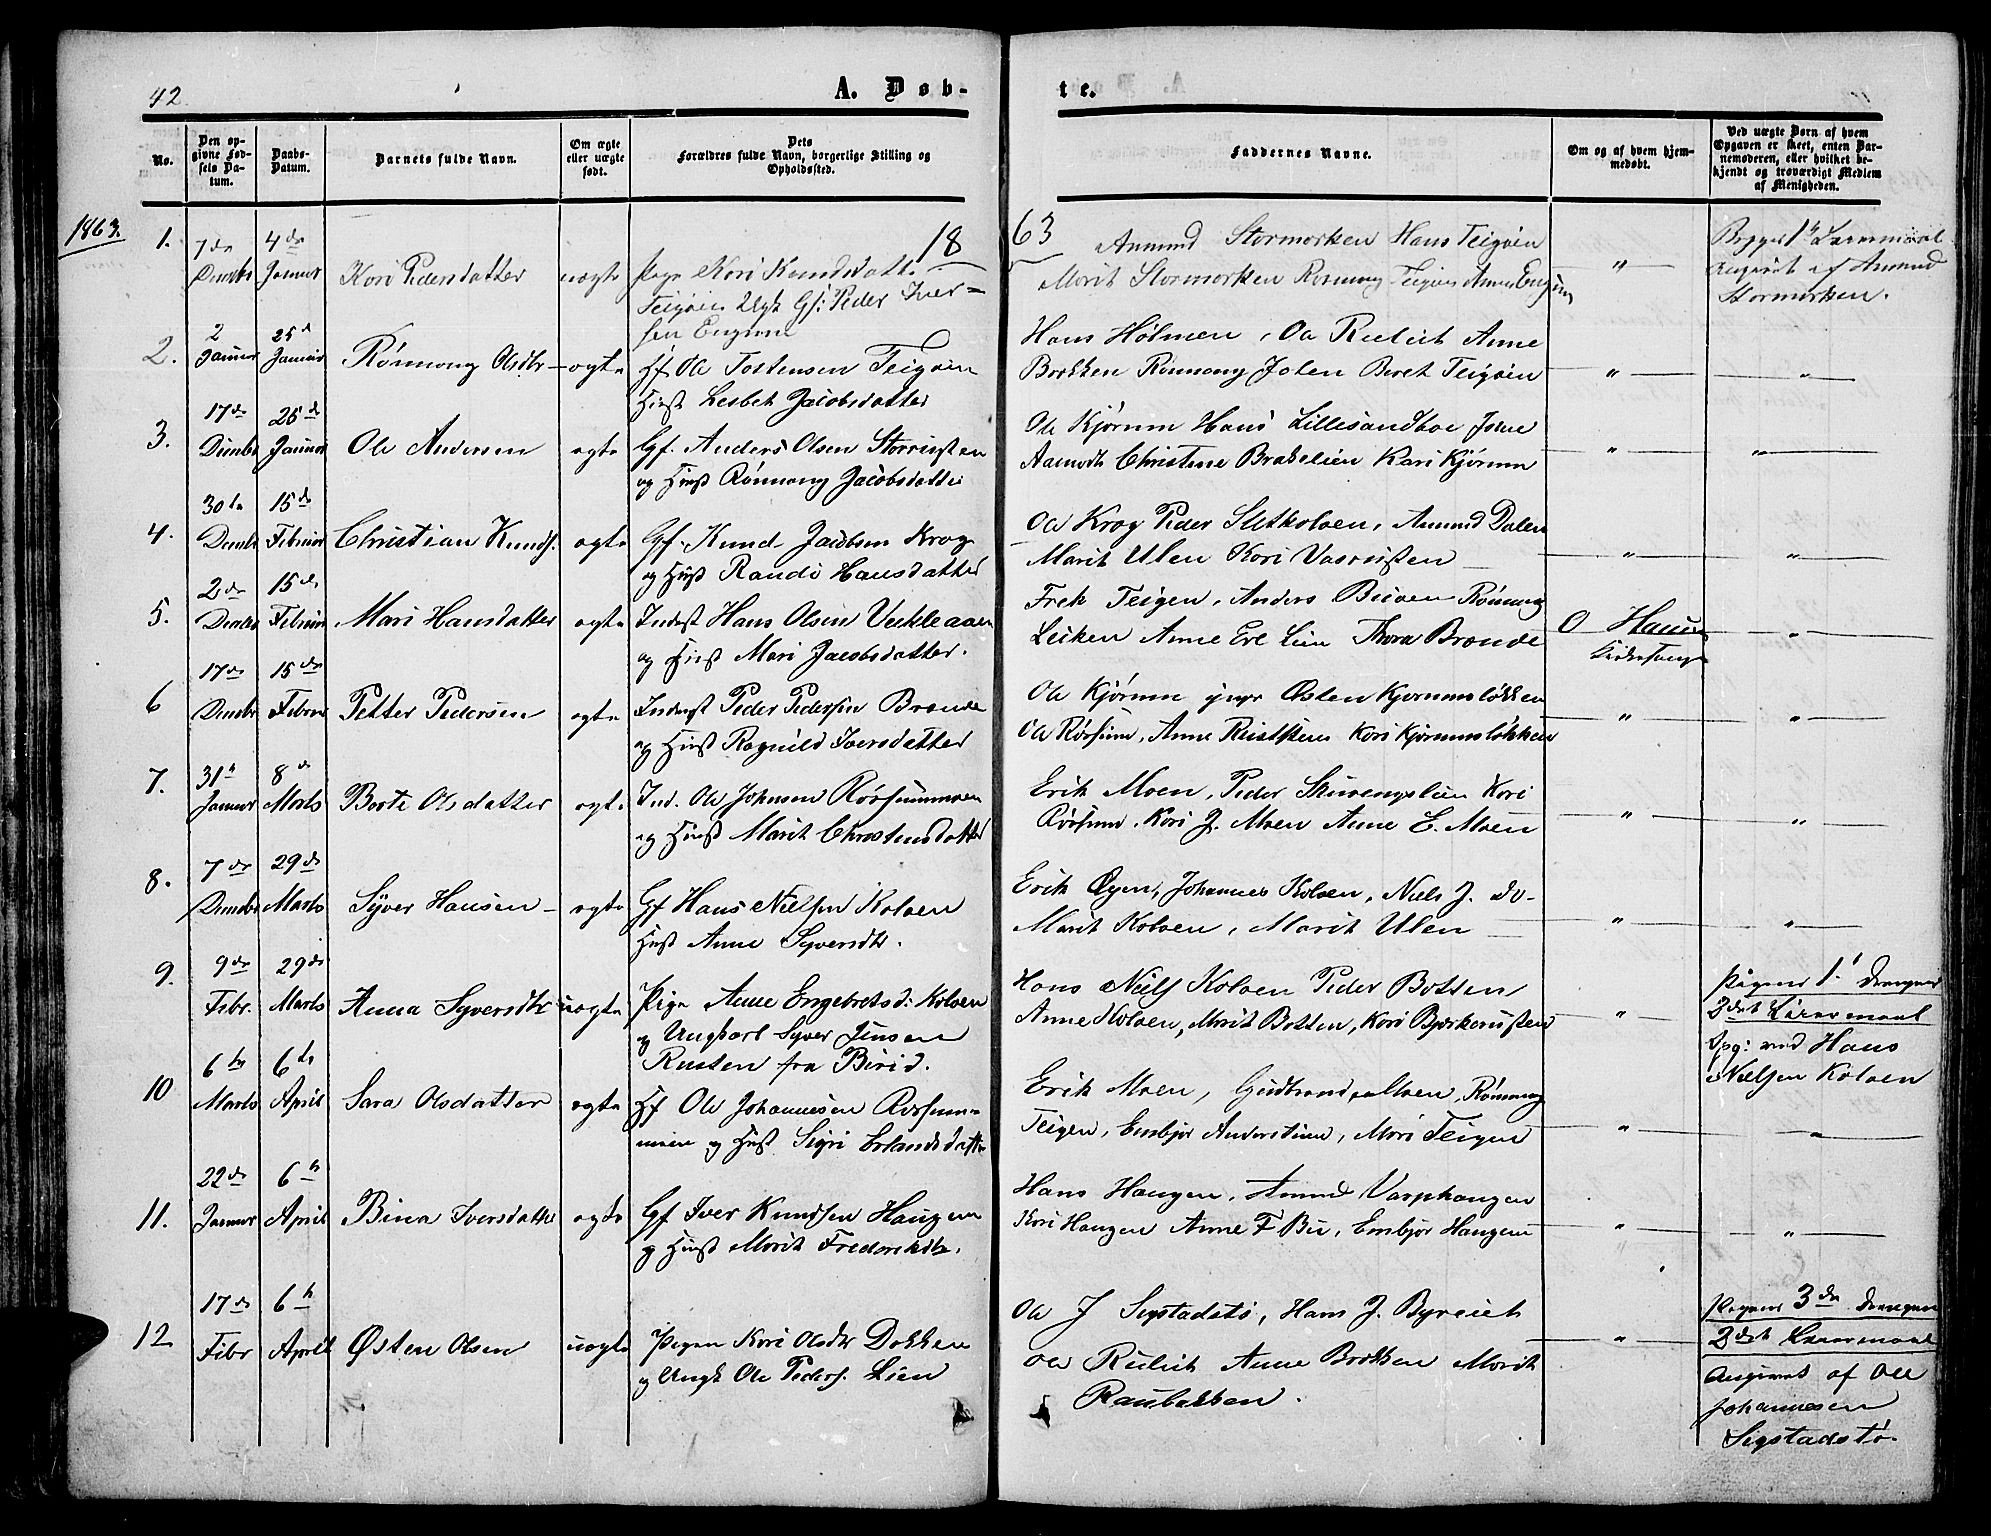 42.
A. Døb-
te.
No.
Den op-
givne Fød-
sels Da-
tum.
Daabs-
Datum.
Barnets fulde Navn.
Om ægte
eller uægte
født.
Dets
Forældres fulde Navn, borgerlige Stilling og
Opholdssted.
Faddernes Navne.
Om og af hvem hjem-
medøbt.
Ved uægte Børn af hvem
Opgaven er skeet, enten Bar-
nemoderen, eller hvilket be-
kjendt og troværdigt Medlem
af Menigheden.
1863.
18
63
1.
7de
4de
Januar
Kari Pedersdatter
uægte
Pige Kari Knudsdatt.
Teigøien Ugk Gf: Peder Iver-
sen
Amund Stormorken Hans Teigøien
Marit Stormorken Rønnoug Teigøien Anne
"
Begges 1te Leiermaal
angivet af Amund
Stormorken.
2.
2
25d
Januar
Januar
Rønnoug Olsdtr
ægte
Hf Ole Tostensen Teigøien
Hust Lesbet Jacobsdatter
Hans Holmen, Ole Anne
Brekken Rønnoug Jolen Beret Teigøien
"
"
3.
17de
25de
Januar
Ole Andersen
ægte
Gf. Anders Olsen
og Hust Rønnoug Jacobsdatter
Ole Kjørum Hans Lillesandboe
Aamodt Christine Brakelien Kari Kjørum
"
"
4.
30te
15de
Februar
Christian Knuds.
ægte
Gf. Knud Jacobsen Krog
og Hust Randi Hansdatter
Ole Krog Peder Sletkolven, Amund Dalen
Marit Ulen Kari
"
"
5.
2de
15de
Februar
Mari Hansdatter
ægte
Inderst Hans Olsen
og Hust Mari Jacobsdatter.
Frek Teigen, Anders Rønnoug
Anne Thora Brænde
O
"
6
17de
15de
Petter Pedersen
ægte
Inderst Peder Pedersen Brænde
og Hust Ragnild Iversdatter
Ole Kjørum Østen Kjørumsløkken
Ole Rørhum, Anne Kari Kjørumsløkken
"
"
7.
31te
8de
Januar
Marts
Berte Olsdatter
ægte
Ind. Ole Johnsen
og Hust Marit Christensdatter
Erik Moen, Peder Kari
Kari J. Moen Anne E. Moen
"
"
8.
7de
29de
Marts
Syver Hansen
ægte
Gf Hans Nielsen Kolven
Hust Anne Syversdtr.
Erik Øyen, Johannes Kolven, Niels J. do
Marit Kolven, Marit Ulen
"
"
9.
9de
29de
Febr.
Marts
Anna Syversdtr
uægte
Pige Anne Engebretsd. Kolven
og Ungkarl Syver Jensen
Rusten fra Birid.
Hans Niels Kolven Peder Botten
Anne Kolven, Marit Botten, Kari Bjørkerusten
"
Pigens 1te Drengens
2det Leiermaal
Opg: ved Hans
Nielsen Kolven
10
6te
6te
Marts
April
Sara Olsdatter
ægte
Hf Ole Johannesen
moen og Hust Sigri Erlandsdatter
Erik Moen, Gudbrand Moen, Rønnoug
Teigen, Embjør Mari Teigen
"
"
11.
22de
6te
Januar
April
Bina Iversdatter
ægte
Gf Iver Knudsen Haugen
og Hust Marit Frederiksdtr.
Hans Haugen, Amund Varphaugen
Kari Haugen Anne F Embjør Haugen
"
"
12
17de
6te
Febr
April
Østen Olsen
uægte
Pigen Kari Olsdtr Dokken
og Ungk Ole Peders. Lien
Ole J Sygstadstø, Hans J.
Ole Anne Brekken Marit
Raubakken.
"
Pigens 3de Drengens
2det Leiermaal
Angivet af Ole
Johannesen
Sygstadstø.